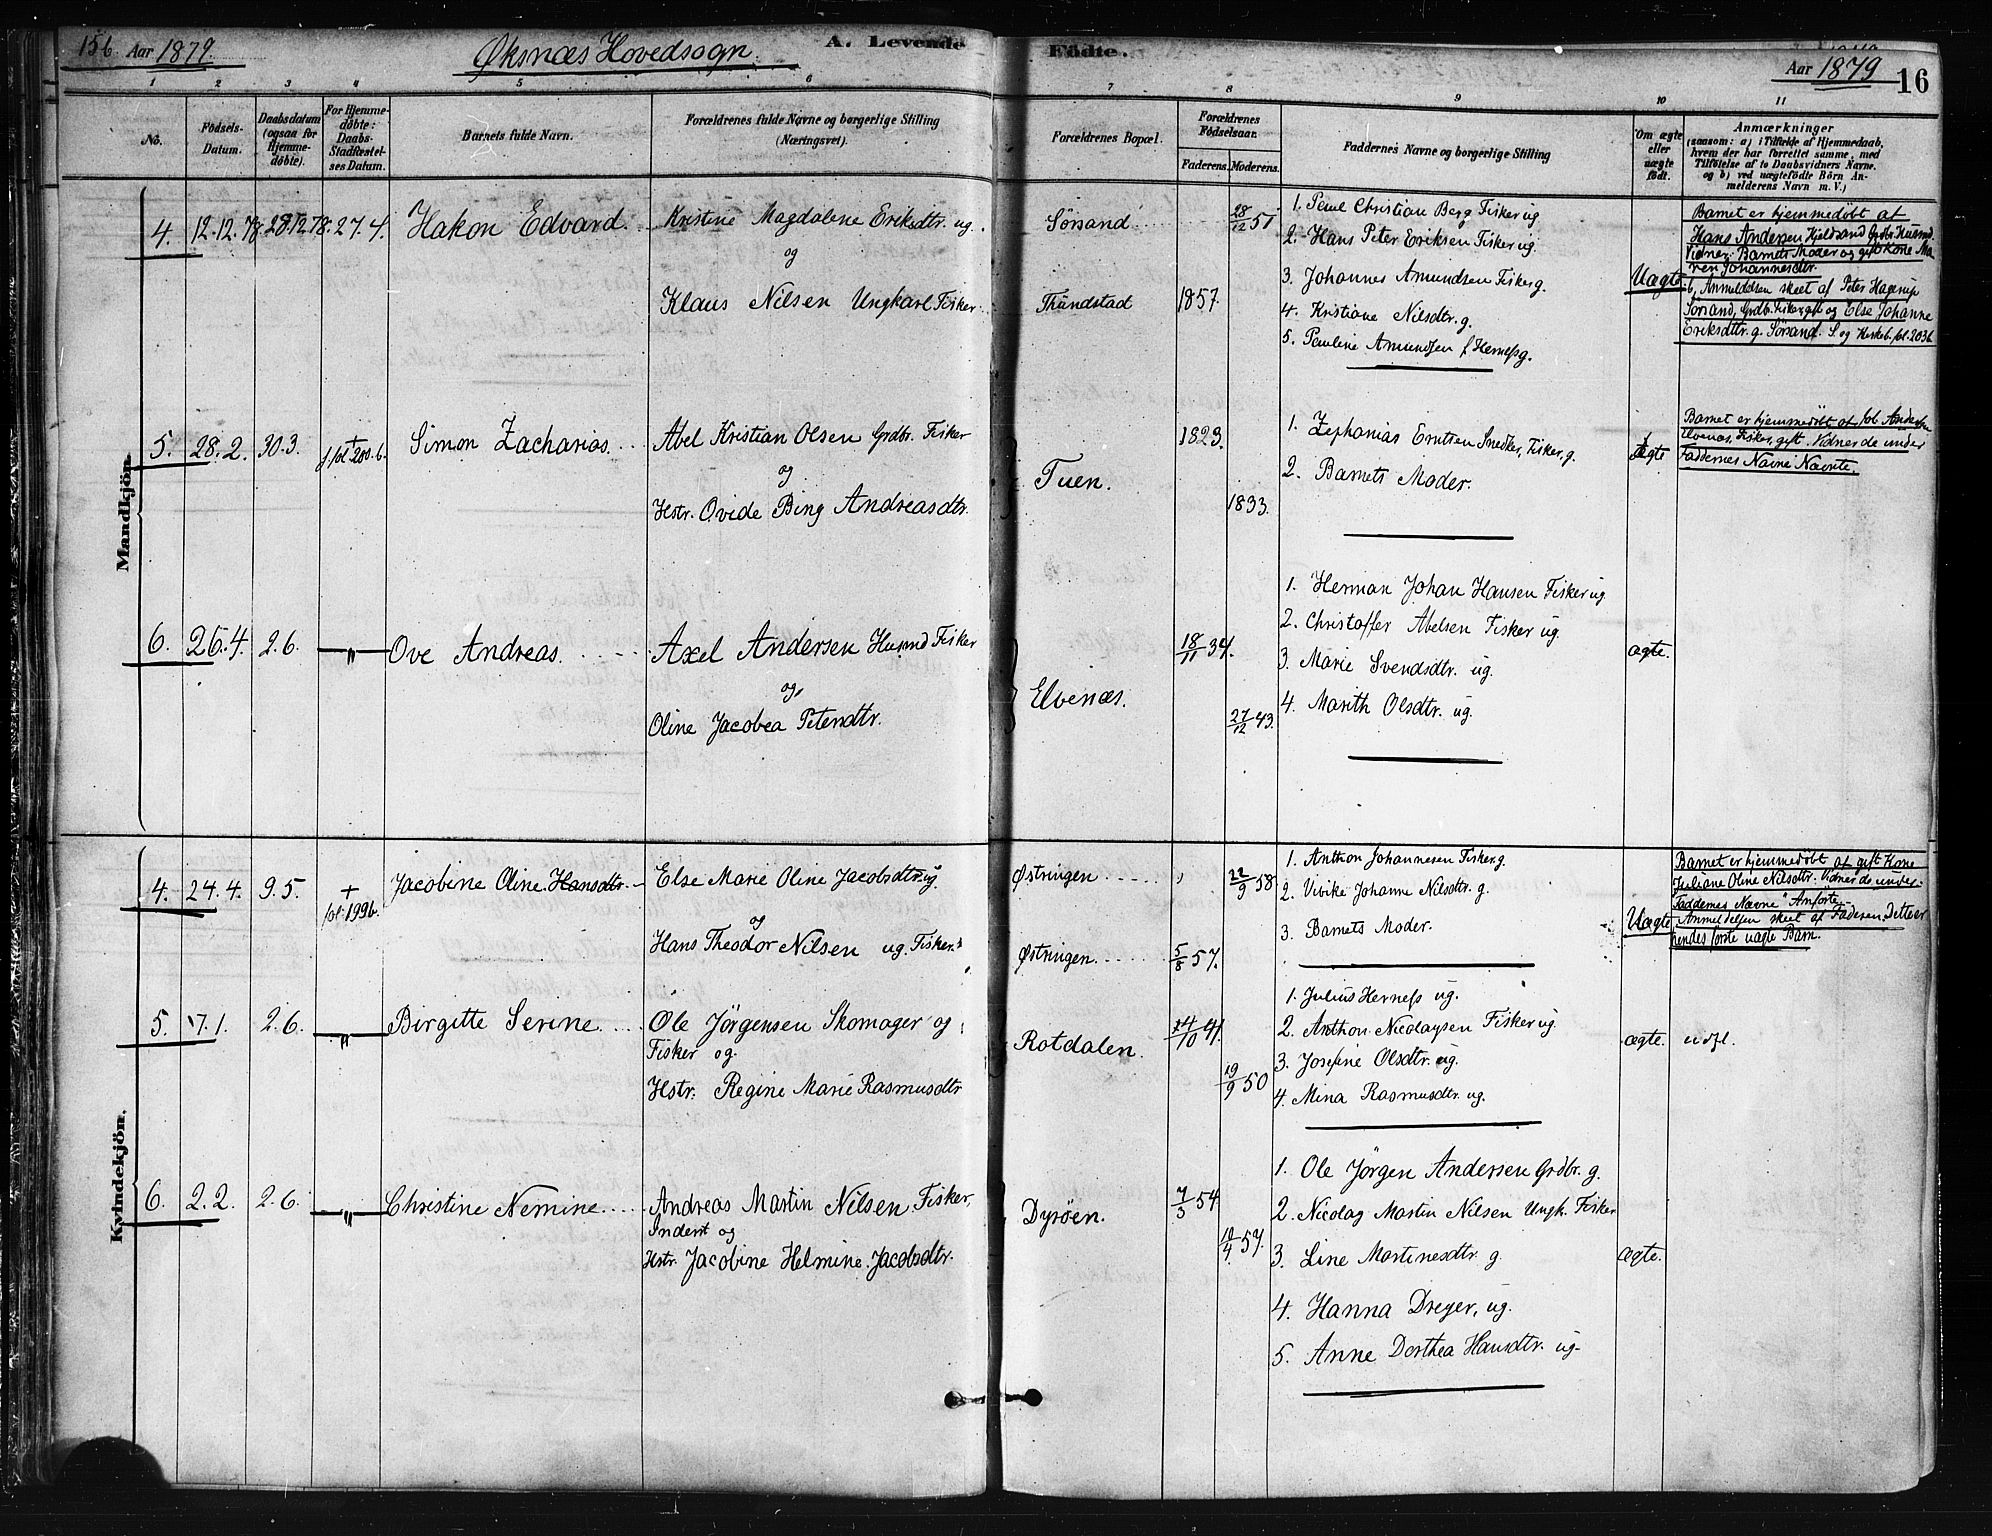 15b. Aar 1879.
Øksnæs Hovedsogn.
A. Levende Födte.
Aar 1879
16
1 2 3 4 5 6 7 8 9 10 11
No.
Födsels-Datum.
Daabsdatum (ogsaa for Hjemme-döbte).
For Hjemme-döbte: Daabs-Stadfæstel-ses Datum.
Barnets fulde Navn.
Forældrenes fulde Navne og borgerlige Stilling (Næringsvei).
Forældrenes Bopæl.
Forældrenes Födselsaar.
Faderens. Moderens.
Faddernes Navne og borgerlige Stilling
Om ægte eller uægte födt.
Anmærkninger
(saasom: a) i Tilfælde af Hjemmedaab,
hvem der har forrettet samme, med
Tilföielse af to Daabsvidners Navne.
og b) ved uægtefödte Börn An-
melderens Navn m. V.)
Mandkjön.
4. 12.12.78. 28.12.78. 27.4. Hakon Edvard.
Kristine Magdalene Eriksdtr. ug.
og
Klaus Nilsen Ungkarl Fisker.
Sörsand
Thindstad
1857.
28/12 51
1. Paul Christian Berg Fisker ug
2. Hans Peter Eriksen Fisker ug.
3. Johannes Amundsen Fisker g.
4. Kristiane Nilsdtr. g.
5. Pauline Amundsen f. Herness g.
Uægte
Barnet er hjemmedøbt af
Hans Andersen Kjeldsand Grdbr. Husmd.
Vidner: Barnets Moder og gift Kone Ma-
ren Johannesdtr.
b, Anmeldelsen skeet af Peter Hagerup
Sörsand, Grdbr. Fisker gift og Else Johanne
Eriksdtr. g. Sörsand. S. og Kirkeb. fol. 203b
5. 28.2. 30.3. † f. fol 200.b. Simon Zacharias.
Abel Kristian Olsen Grdbr. Fisker
og
Hstr. Ovide Bing Andreasdtr.
Tuen.
1823.
1833.
1. Zephanias Erntsen Snedker, Fisker, g.
2. Barnets Moder.
Ægte
Barnet er hjemmedøbt af Job Andersen
Elvenæs, Fisker, gift. Vidner de under
Faddernes Navne Nævnte.
6. 25.4. 2.6. " Ove Andreas.
Axel Andersen Husmd Fisker
og
Oline Jacobea Petersdtr.
Elvenæs.
18/11 34.
27/12 43.
1. Herman Johan Hansen Fisker ug
2. Christoffer Abelsen Fisker ug.
3. Marie Svendsdtr. ug.
4. Marith Olsdtr. ug.
ægte.
Kvindekjön.
4. 24.4. 9.5. † fol. 199b. Jacobine Oline Hansdtr.
Else Marie Oline Jacobsdtr. ug.
og
Hans Theodor Nilsen ug. Fisker.
Østringen
Østringen
5/8 57.
22/9 58.
1. Anthon Johannesen Fisker g.
2. Vivike Johanne Nilsdtr. g.
3. Barnets Moder.
Uægte
Barnet er hjemmedøbt af gift Kone
Juliane Oline Nilsdtr. Vidner de under
Faddernes Navne Anførte.
Anmeldelsen skeet af Faderen. Dette er
hendes første uægte Barn.
5. 17.1. 2.6. " Birgitte Serine.
Ole Jörgensen Skomager og
Fisker og
Hstr. Regine Marie Rasmusdtr
Rotdalen.
14/10 41.
19/9 50
1. Julius Herness ug.
2. Anthon Nicolaysen Fisker ug.
3. Josefine Olsdtr. ug.
4. Mina Rasmusdtr. ug.
ægte.
6. 2.2. 2.6. " Christine Nemine.
Andreas Martin Nilsen Fisker,
Inderst og
Hstr. Jacobine Helmine Jacobsdtr.
Dyröen.
7/3 54
10/4 57.
1. Ole Jörgen Andersen Grdbr. g.
2. Nicolay Martin Nilsen Ungk. Fisker
3. Line Martinesdtr. g.
4. Hanna Dreyer, ug.
5. Anne Dorthea Hansdtr. ug.
Ægte.